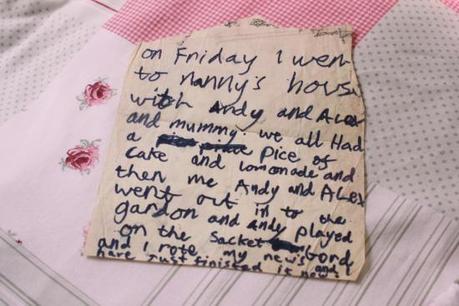 on Friday I wen
to nanny's hous
with Andy and Alex
and mummy. we all Had
a Pice of
cake and lomonade and
then me Andy and ALEX
went out in to the
gardon and Andy played
on the Sacket bord
and I rote my new's and
have Just finished it now